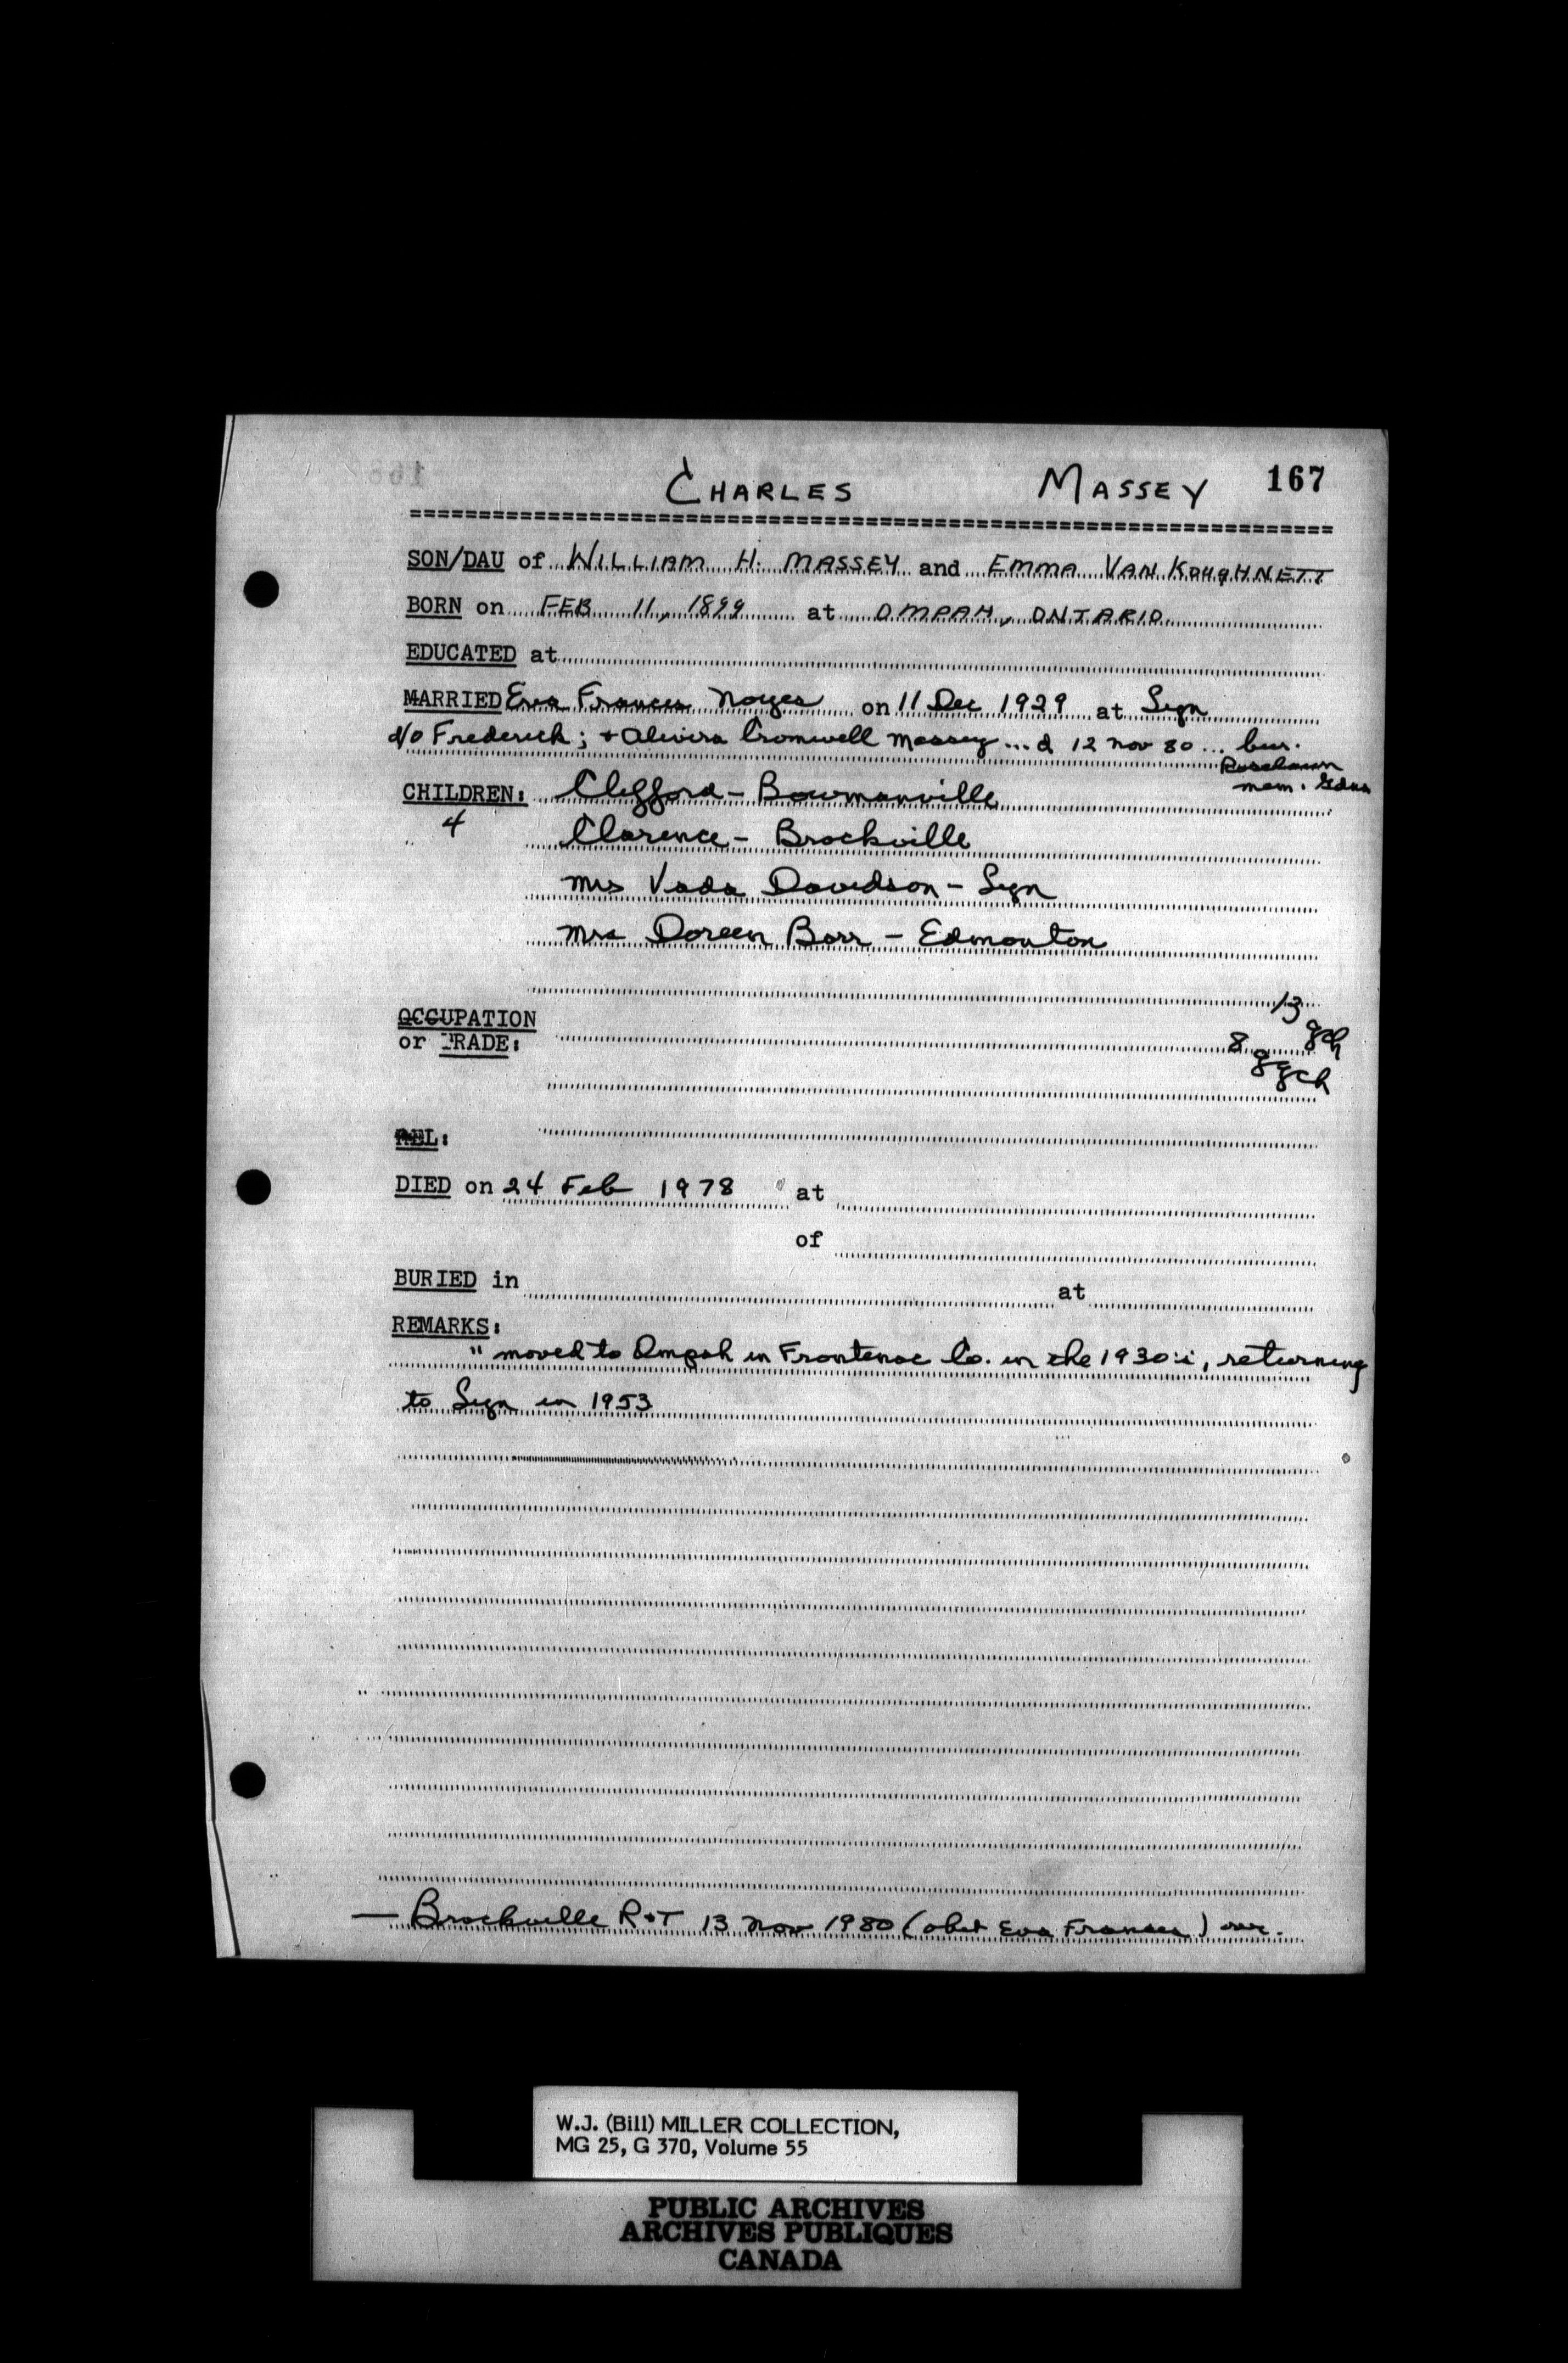 CHARLES MASSEY 167
SON/DAU of WILLIAM H. MASSEY and EMMA VAN KOUGHNETT
BORN on FEB 11, 1899 at OMPAH, ONTARIO
EDUCATED at
MARRIED Eva Frances Noyes on 11 Dec 1929 at Lyn
d/o Frederick; + Alvira Cromwell Massey ... d 12 Nov 80 ... bur.
Roselawn
mem. Gdns
CHILDREN: Clifford - Bowmanville
4
Clarence - Brockville
Mrs Vada Davidson - Lyn
Mrs Doreen Barr - Edmonton
13 gch
OCCUPATION
or TRADE:
8 ggch
REL:
DIED on 24 Feb 1978 at
of
BURIED in at
REMARKS:
" moved to Ompah in Frontenac Co. in the 1930's, returning
to Lyn in 1953
— Brockville R+T 13 Nov 1980 (obit Eva Frances)
W.J. (Bill) MILLER COLLECTION,
MG 25, G 370, Volume 55
PUBLIC ARCHIVES
ARCHIVES PUBLIQUES
CANADA